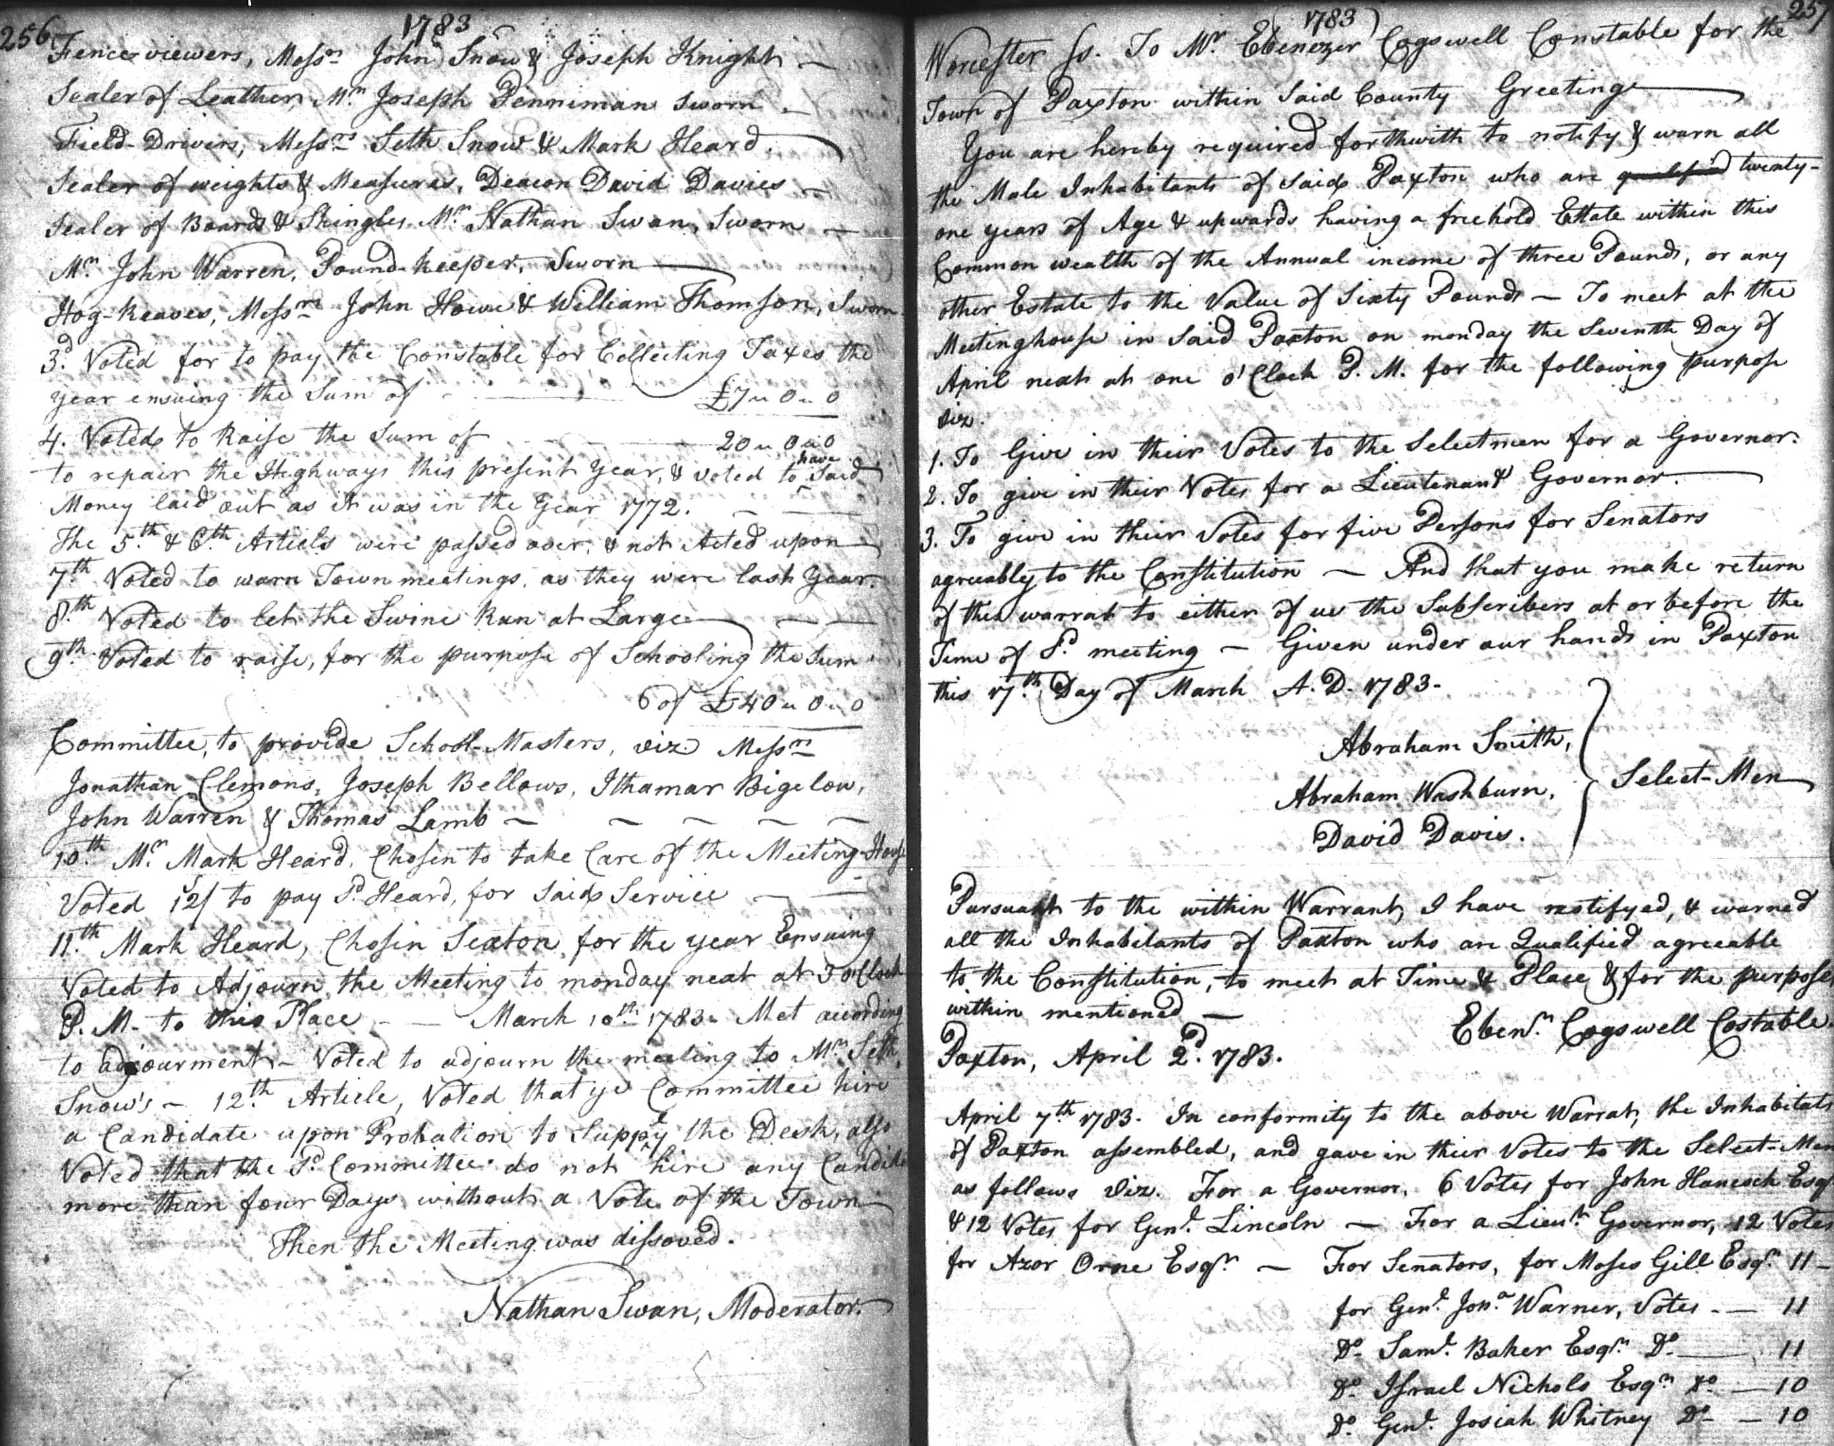 256
1783
Fence viewers, Messrs John Snow & Joseph Knight —
Sealer of Leather, Mr. Joseph Penniman Sworn —
Field-Drivers, Messrs Seth Snow & Mark Heard.
Sealer of weights & Measures, Deacon David Davies —
Sealer of Boards & Shingles, Mr. Nathan Swan, Sworn —
Mr. John Warren, Pound-keeper, Sworn —
Hog-Reaves, Messrs John Howe & William Thomson, Sworn
3d. Voted for to pay the Constable for Collecting Taxes the
year ensuing the Sum of — £7 " 0 " 0
4. Voted to Raise the Sum of — 20 " 0 " 0
to repair the Highways this present Year, & voted to have Said
Money laid out as it was in the Year 1772. —
The 5.th & 6.th Articls were passed over, & not Acted upon
7.th Voted to warn Town meetings, as they were last Year.
8.th Voted to let the Swine Run at Large — —
9.th Voted to raise, for the purpose of Schooling the Sum
of £40 " 0 " 0
Committee, to provide School-Masters, viz Messrs
Jonathan Clemons, Joseph Bellows, Ithamar Bigelow,
John Warren & Thomas Lamb — — — — —
10.th Mr. Mark Heard, Chosen to take Care of the Meeting-House
Voted 12/ to pay Sd. Heard, for said Service —
11.th Mark Heard, Chosen Sexton, for the year Ensuing
Voted to Adjourn the Meeting to monday next at 3 o'Clock
P. M. to this Place — — March 10.th 1783. Met according
to adjourment — Voted to adjourn the meeting to Mr. Seth
Snow's — 12.th Article, Voted that ye Committee hire
a Candidate upon Probation to Supply the Desk, also
Voted that the Sd. Committee do not hire any Candide
more than four Days without a Vote of the Town
Then the Meeting was dissoved.
Nathan Swan, Moderator.
257
1783
Worcester Ss. To Mr. Ebenezer Cogswell Constable for the
Town of Paxton within Said County Greeting
You are hereby required forthwith to notify & warn all
the Male Inhabitants of Said Paxton who are qualified twenty-
one years of Age & upwards having a freehold Estate within this
Common wealth of the Annual income of three Pounds, or any
other Estate to the Value of Sixty Pounds — To meet at the
Meetinghouse in Said Paxton on monday the Seventh Day of
April next at one o'Clock P. M. for the following purpose
viz.
1. To Give in their Votes to the Selectmen for a Governor.
2. To give in their Votes for a Lieutenant Governor.
3. To give in their Votes for five Persons for Senators
agreeably to the Constitution — And that you make return
of this warrat to either of us the Subscribers at or before the
Time of Sd. meeting — Given under our hands in Paxton
this 17.th Day of March A. D. 1783.
Abraham Smith,
Abraham Washburn,
Select-Men
David Davis.
Pursuant to the within Warrant, I have notifyed, & warned
all the Inhabetants of Paxton who are Qualified agreeable
to the Constitution, to meet at Time & Place & for the purpose
within mentioned —
Ebenr. Cogswell Costable.
Paxton, April 2d. 1783.
April 7th 1783. In conformity to the above Warrat, the Inhabitats
of Paxton assembled, and gave in their Votes to the Select-Men
as follows Viz. For a Governor, 6 Votes for John Hancock Esqr
& 12 Votes for Genl. Lincoln — For a Lieut. Governor, 12 Votes
for Azor Orne Esqr. — For Senators, for Moses Gill Esqr. 11 —
for Genl. Jona. Warner, Votes — 11
Do. Saml. Baker Esqr. Do. — 11
Do. Israel Nichols Esqr. Do. — 10
Do. Genl. Josiah Whitney Do. — 10